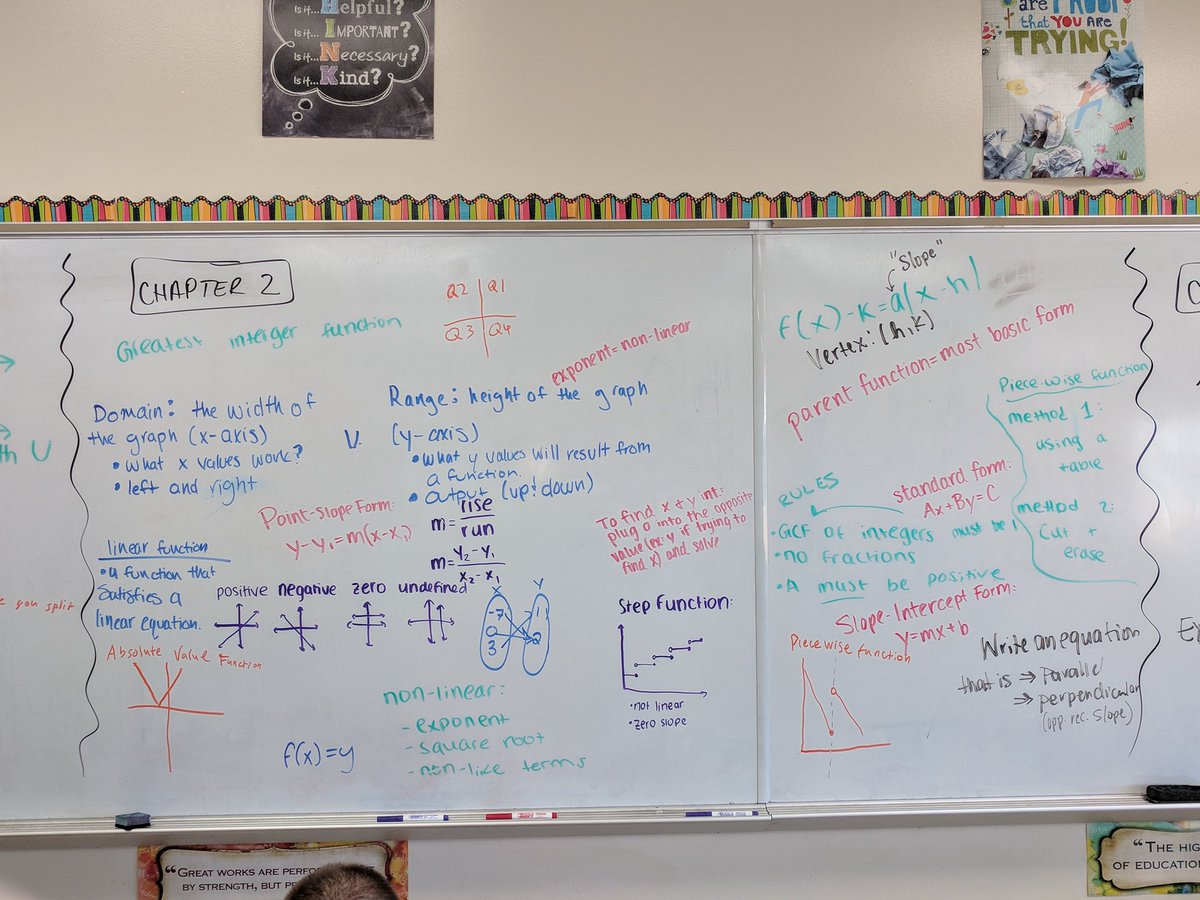 Is it... Helpful?
Is it... IMPORTANT?
Is it... Necessary?
Is it... Kind?
are PROOF
that YOU ARE
TRYING!
CHAPTER 2
Greatest interger function
Q2 Q1
Q3 Q4
exponent=non-linear
Domain: the width of
the graph (x-axis)
• what x values work?
• left and right
V.
Range: height of the graph
(y-axis)
• what y values will result from
a function.
• output (up & down)
th U
Point-Slope Form:
y-y₁=m(x-x₁)
m= rise
run
m= y₂-y₁
x₂-x₁
To find x + y int:
plug 0 into the opposite
value (ex: y if trying to
find x) and solve
linear function
• a function that
satisfies a
linear equation.
you split
positive negative zero undefined
x y
-7 1
0 2
3
Step Function:
• not linear
• zero slope
Absolute Value Function
non-linear:
- exponent
- square root
- non-like terms
f(x)=y
"Slope"
f(x)-k=a|x-h|
Vertex: (h,k)
parent function=most basic form
Piece-wise function
method 1:
using a
table
method 2:
cut +
erase
RULES
standard form:
Ax+By=C
• GCF of integers must be 1
• no fractions
• A must be positive
Slope-Intercept Form:
y=mx+b
Piecewise function
Write an equation
that is ⇒ Parallel
⇒ perpendicular
(opp. rec. slope)
C
"GREAT WORKS ARE
BY STRENGTH, BUT
"THE
OF EDUCATION